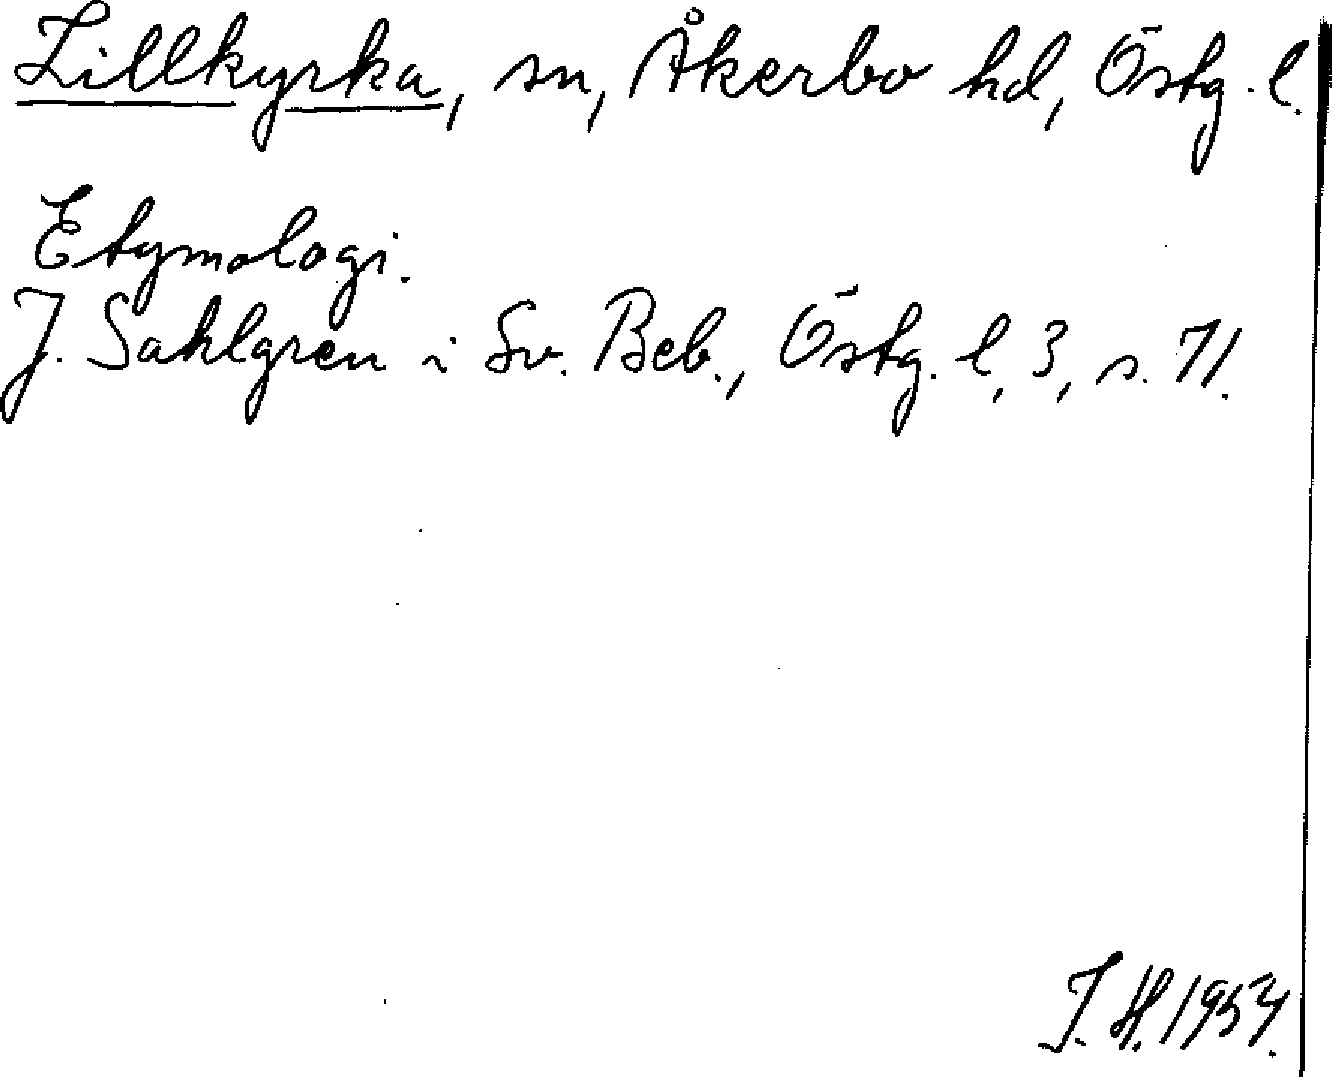 Lillkyrka, sn, Åkerbo hd, Östg. l.
Etymologi.
J. Sahlgren i Sv. Beb., Östg. l, 3, s. 71.
I. H. 1954.